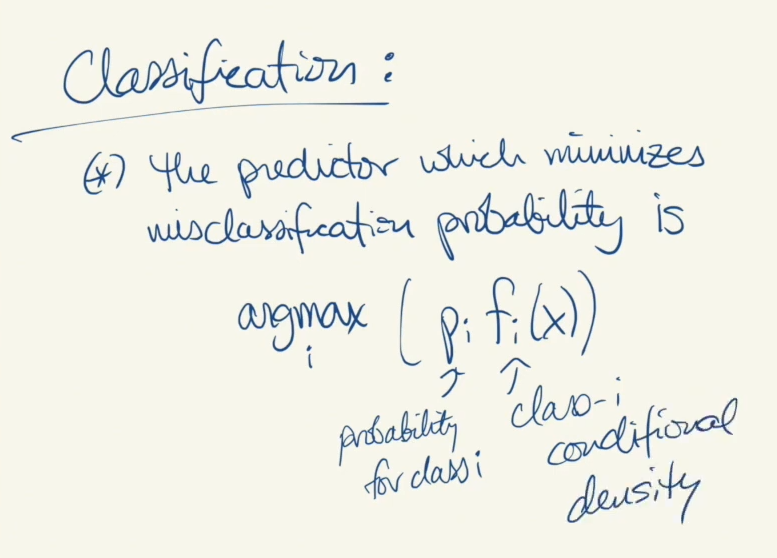 Classification:
(*) the predictor which minimizes
misclassification probability is
argmax ( pᵢ fᵢ(x))
i
↑ ↑
probability class-i
for class i conditional
density